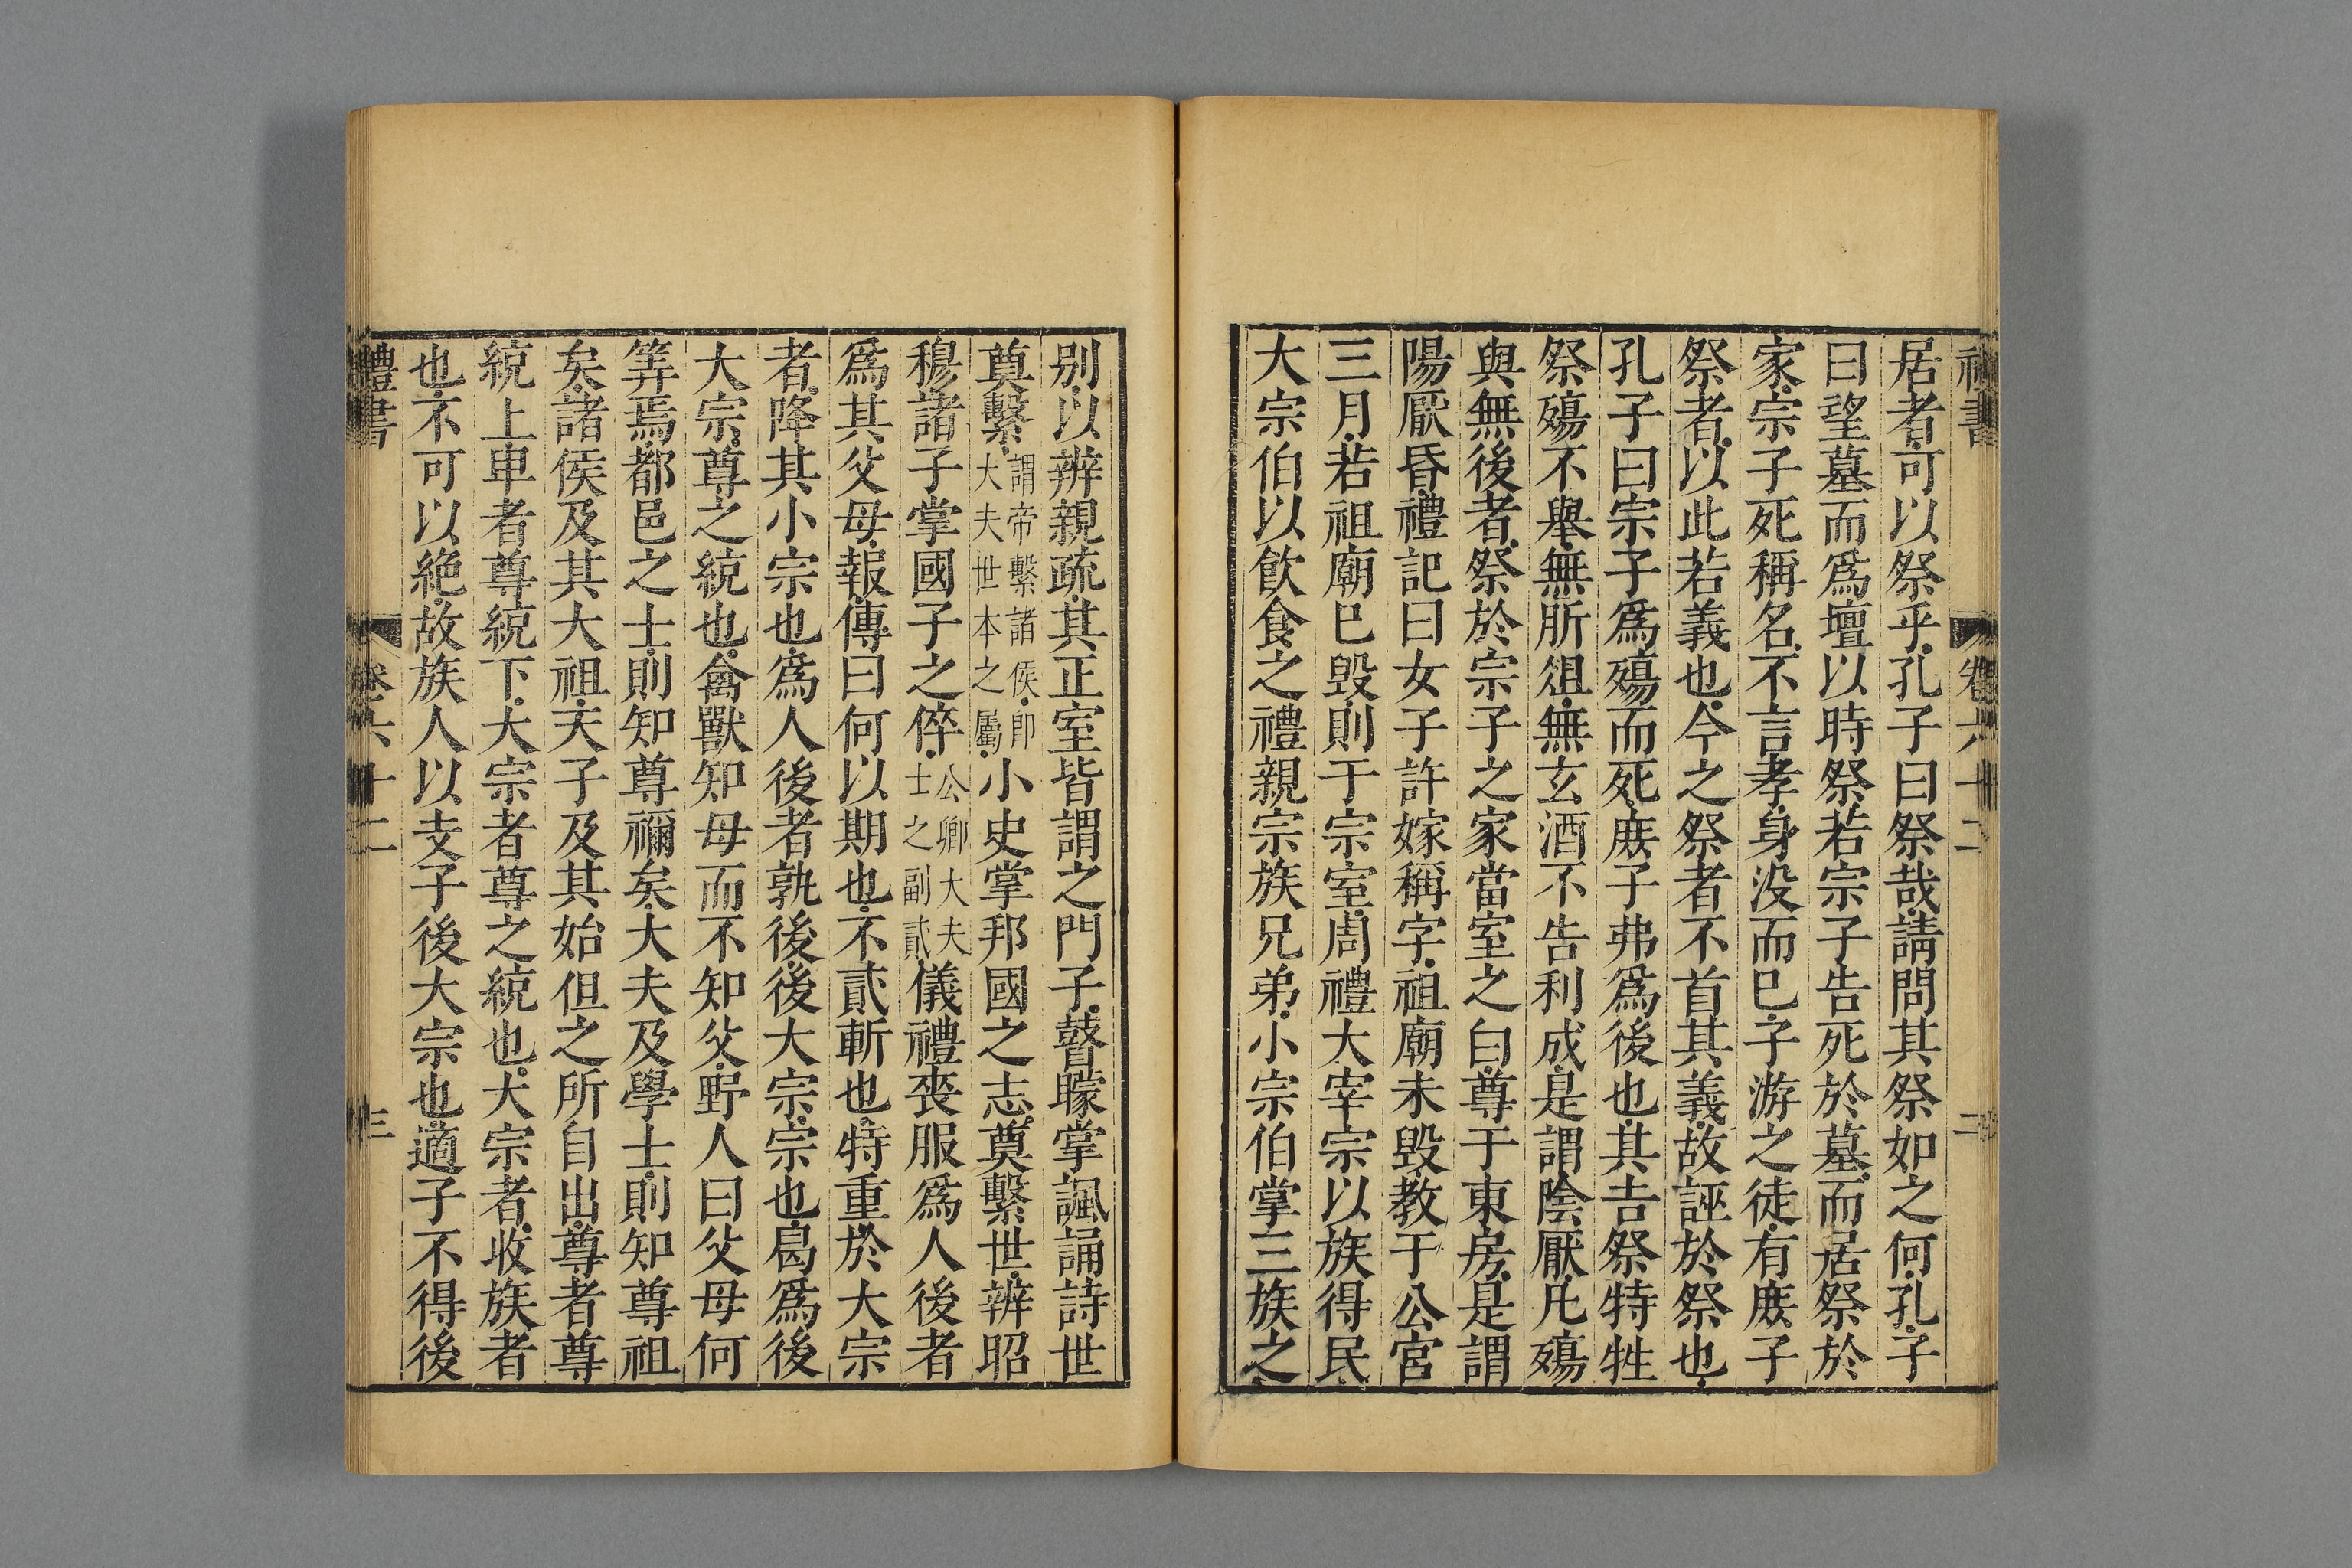 禮書 卷六十二 二
居者可以祭乎孔子曰祭哉請問其祭如之何孔子
曰望墓而爲壇以時祭若宗子告死於墓而居祭於
家宗子死稱名不言孝身没而巳子游之徒有庻子
祭者以此若義也今之祭者不首其義故誣於祭也
孔子曰宗子爲殤而死庻子弗爲後也其吉祭特牲
祭殤不舉無肵俎無玄酒不告利成是謂陰厭凡殤
與無後者祭於宗子之家當室之白尊于東房是謂
陽厭昏禮記曰女子許嫁稱字祖廟未毁教于公宮
三月若祖廟巳毁則于宗室周禮大宰宗以族得民
大宗伯以飲食之禮親宗族兄弟小宗伯掌三族之
别以辨親疏其正室皆謂之門子瞽矇掌諷誦詩世
奠繫謂帝繫諸侯卽大夫世本之屬小史掌邦國之志奠繫世辨昭
穆諸子掌國子之倅公卿大夫士之副貳儀禮喪服爲人後者
爲其父母報傳曰何以期也不貳斬也特重於大宗
者降其小宗也爲人後者孰後後大宗宗也曷爲後
大宗尊之統也禽獸知母而不知父野人曰父母何
筭焉都邑之士則知尊禰矣大夫及學士則知尊祖
矣諸侯及其大祖天子及其始但之所自出尊者尊
統上卑者尊統下大宗者尊之統也大宗者收族者
也不可以絶故族人以支子後大宗也適子不得後
禮書 卷六十二 三